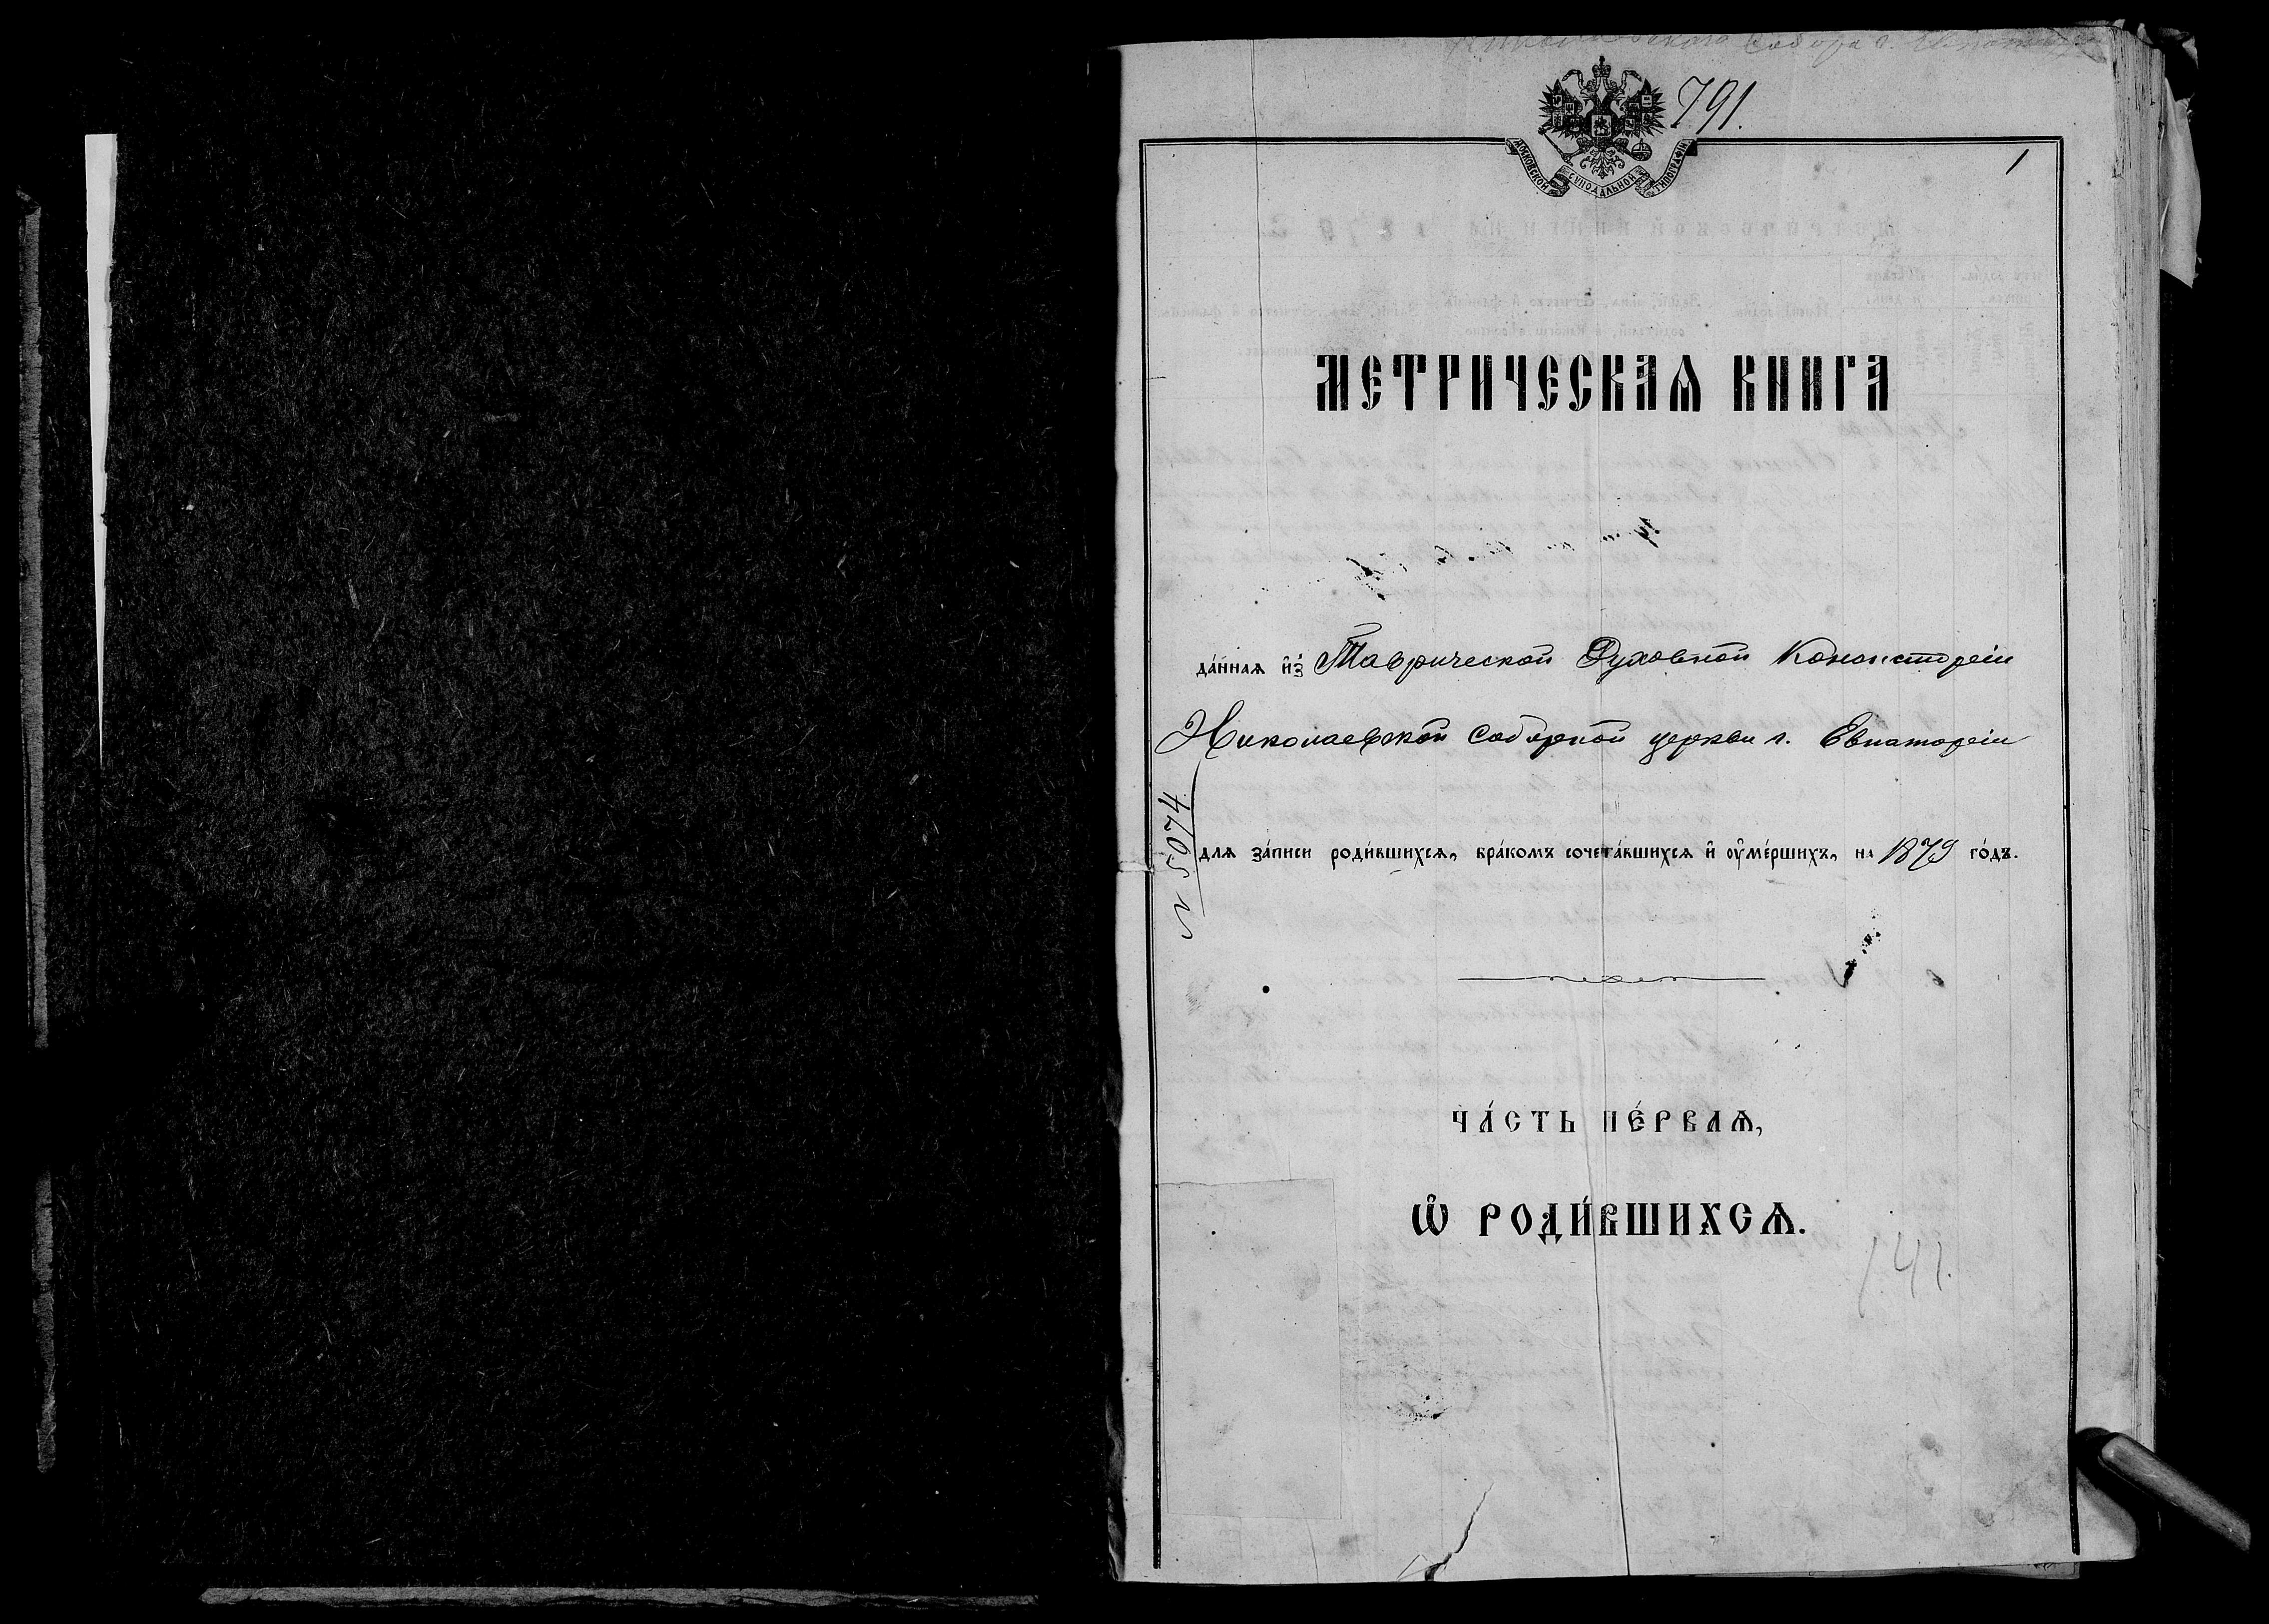 Собора г.
791.
МОСКОВСКОЙ СѴНОДАЛЬНОЙ ТИПОГРАФІИ
1
МЕТРИЧЕСКАѦ КНИГА
да́нная и҆з̾ Таврической Духовной Консисторіи
Николаевской соборной церкви г. Евпаторіи
№ 5074
для за́писи роди́вшихся, бра́комъ сочета́вшихся и҆ ᲂу҆ме́ршихъ, на 1879 го́дъ.
ЧА́СТЬ ПЕ́РВАѦ,
Ѡ҆ РОДИ́ВШИХСѦ.
141.